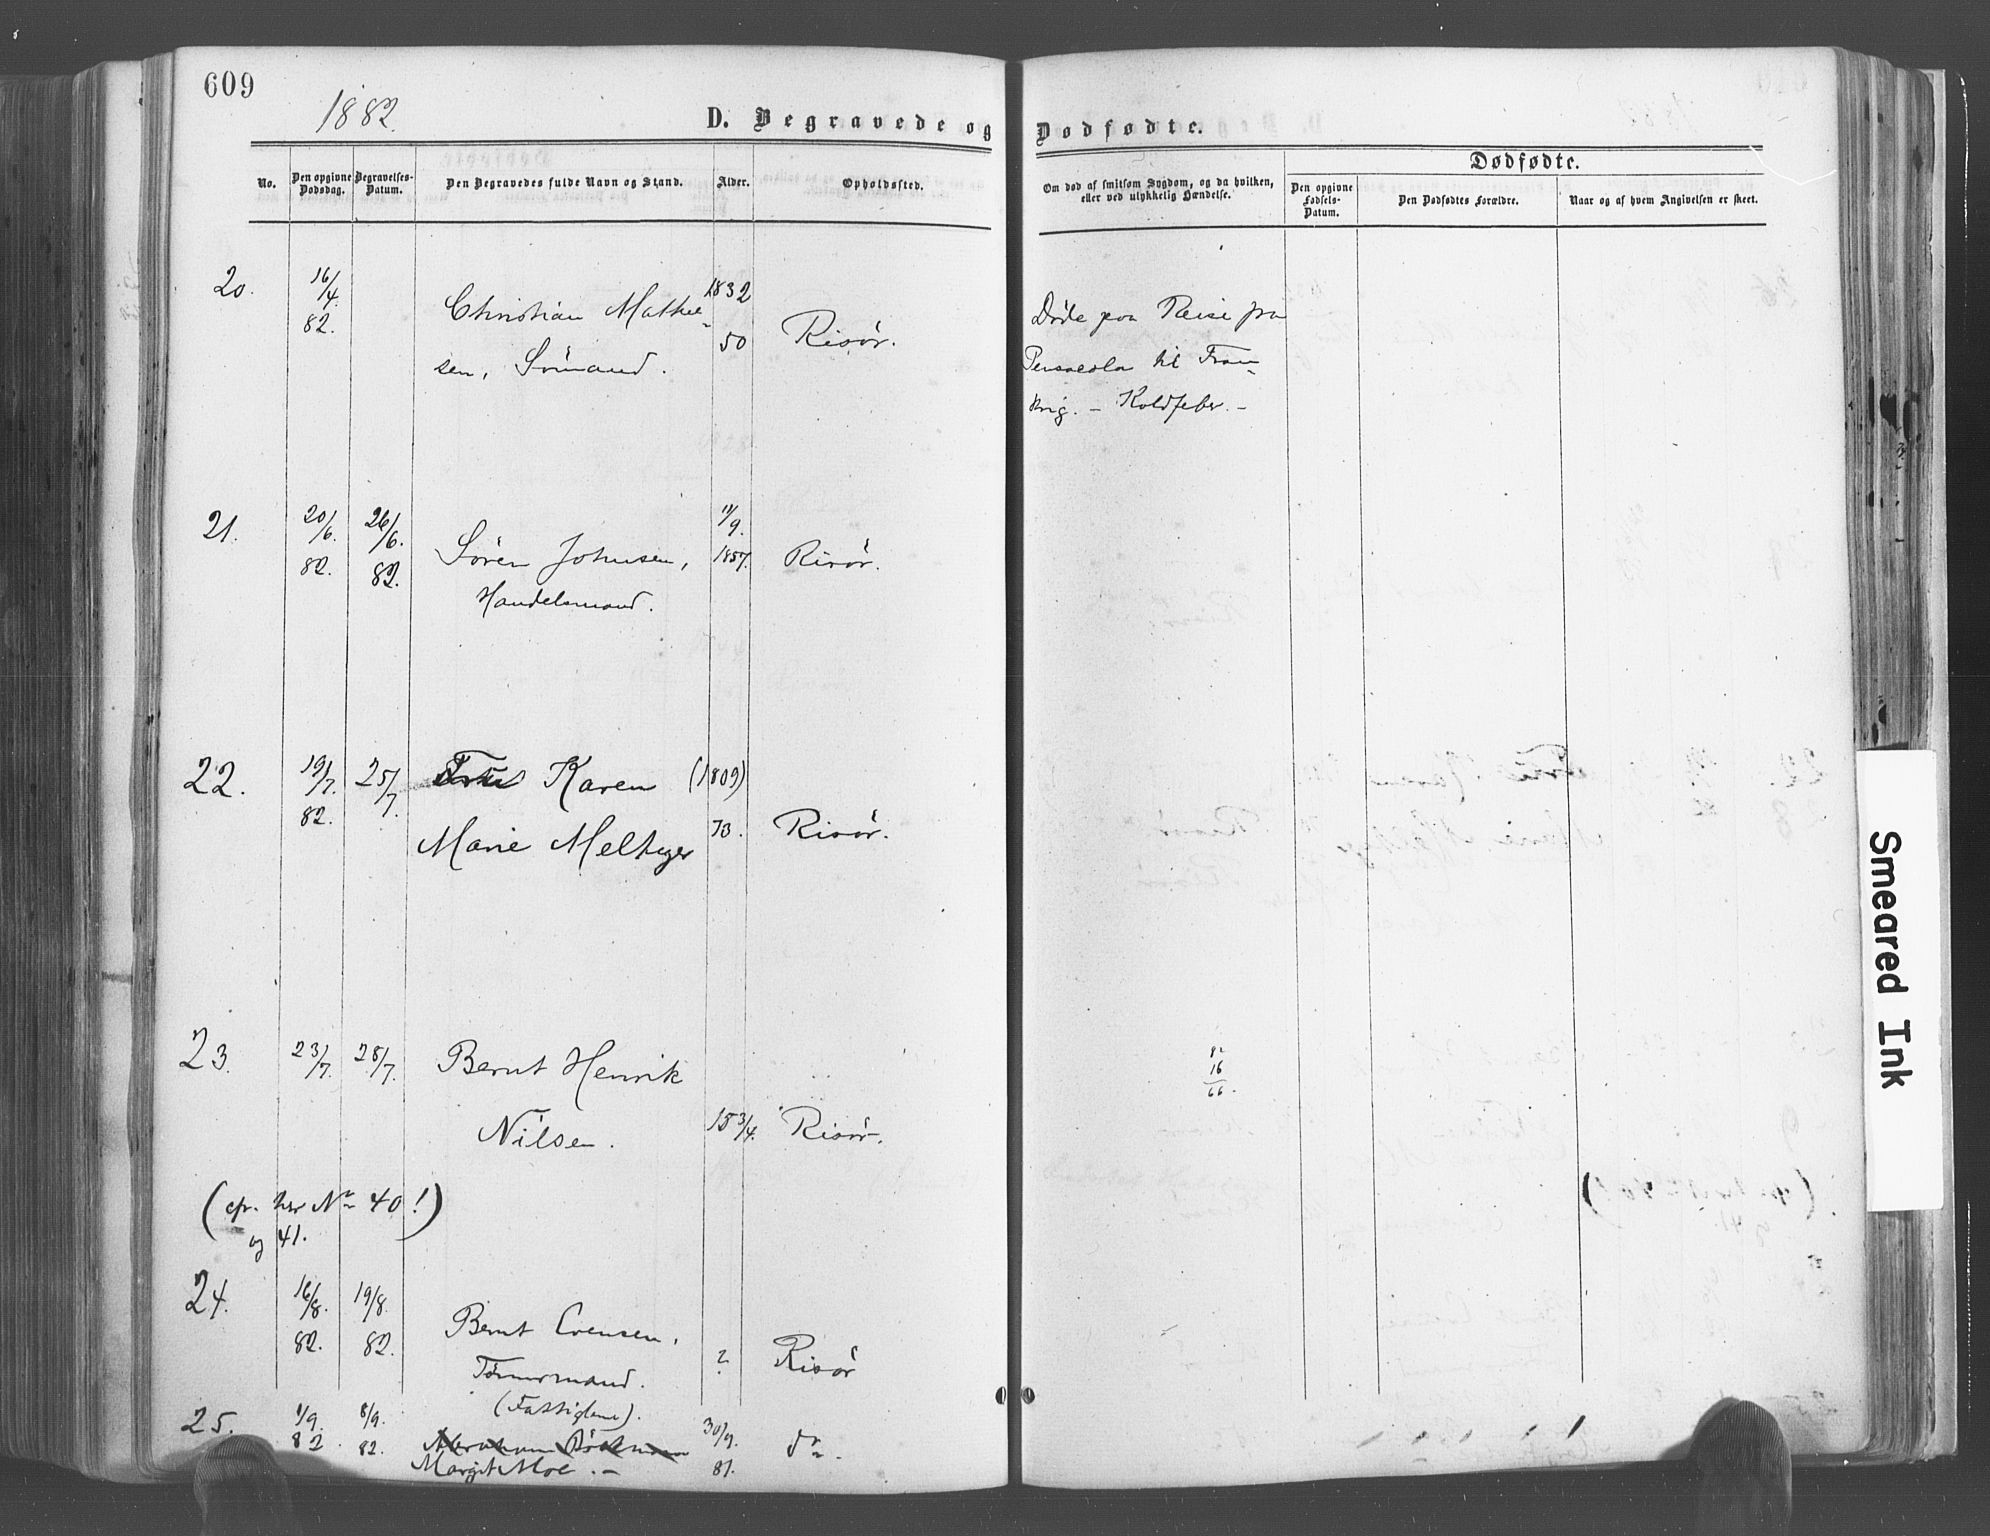 609
1882.
D. Begravede og Dødfødte.
No.
Den opgivne Dødsdag.
Begravelses-Datum.
Den Begravedes fulde Navn og Stand.
Alder.
Opholdssted.
Om død af smitsom Sygdom, og da hvilken,
eller ved ulykkelig Hændelse.
Dødfødte.
Den opgivne Fødsels-Datum.
Den Dødfødtes Forældre.
Naar og af hvem Angivelsen er skeet.
20. 16/4. 82. Christian Mathie- 1832
sen, Sömand. 50 Risör.
Döde paa Reise fra
Pensacola til Fran-
krig. - Koldfeber. -
21. 20/6. 82. 26/6. 82. Sören Johnsen, 11/9. 1857. Risör.
Handelsmand.
22. 19/7. 82. 25/7. Karen (1809)
Marie Meltzer 73. Risör.
23. 23/7. 28/7. Bernt Henrik
Nilsen. 15 3/4. Risör.
82
16
66.
(cfr. her No 40!)
og 41.
24. 16/8. 82. 19/8. 82. Bernt Evensen,
Tömmermand. ? Risör
(Fattiglem).
25. 1/9. 82. 8/9. 82. 30/9. 81. do.
Margit Moe. -
Smeared Ink